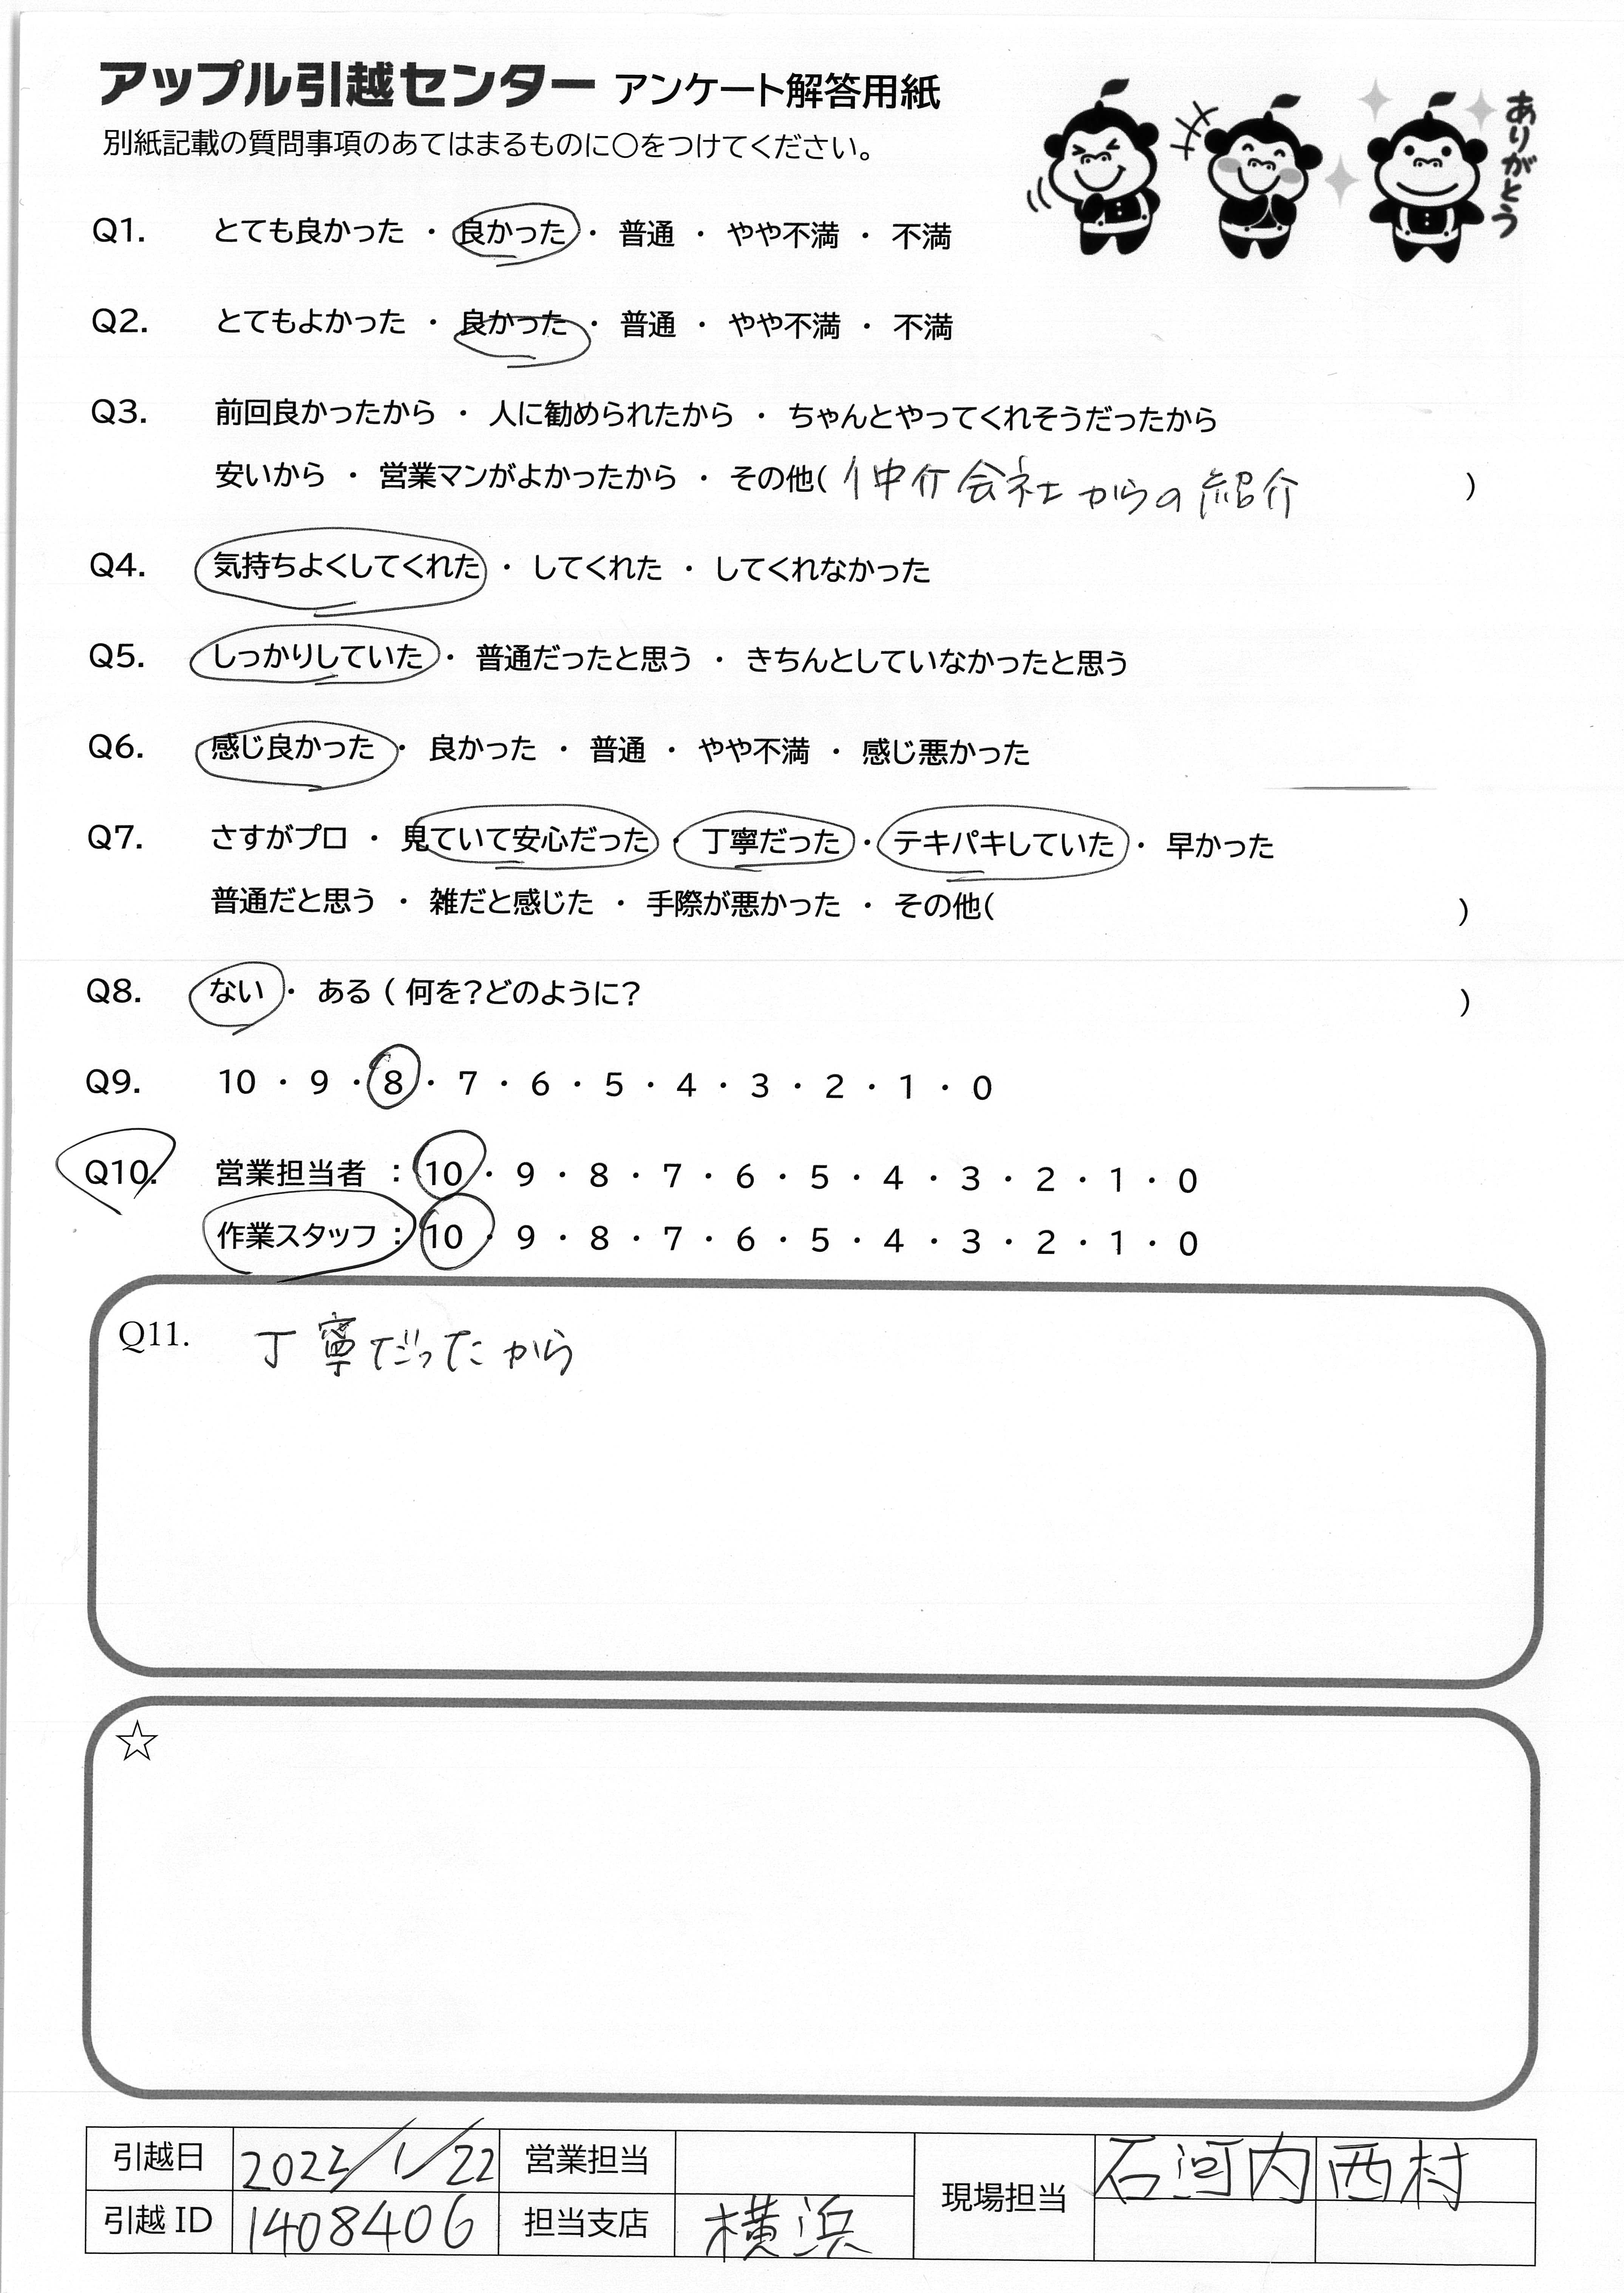 アップル引越センター アンケート解答用紙
ありがとう
別紙記載の質問事項のあてはまるものに○をつけてください。
Q1. とても良かった ・ 良かった ・ 普通 ・ やや不満 ・ 不満
Q2. とてもよかった ・ 良かった ・ 普通 ・ やや不満 ・ 不満
Q3. 前回良かったから ・ 人に勧められたから ・ ちゃんとやってくれそうだったから
安いから ・ 営業マンがよかったから ・ その他( 仲介会社からの紹介 )
Q4. 気持ちよくしてくれた ・ してくれた ・ してくれなかった
Q5. しっかりしていた ・ 普通だったと思う ・ きちんとしていなかったと思う
Q6. 感じ良かった ・ 良かった ・ 普通 ・ やや不満 ・ 感じ悪かった
Q7. さすがプロ ・ 見ていて安心だった ・ 丁寧だった ・ テキパキしていた ・ 早かった
普通だと思う ・ 雑だと感じた ・ 手際が悪かった ・ その他( )
Q8. ない ・ ある ( 何を?どのように? )
Q9. 10 ・ 9 ・ 8 ・ 7 ・ 6 ・ 5 ・ 4 ・ 3 ・ 2 ・ 1 ・ 0
Q10. 営業担当者 : 10 ・ 9 ・ 8 ・ 7 ・ 6 ・ 5 ・ 4 ・ 3 ・ 2 ・ 1 ・ 0
作業スタッフ : 10 ・ 9 ・ 8 ・ 7 ・ 6 ・ 5 ・ 4 ・ 3 ・ 2 ・ 1 ・ 0
Q11. 丁寧だったから
☆
引越日 2023/1/22 営業担当 現場担当 石河内 西村
引越 ID 1408406 担当支店 横浜